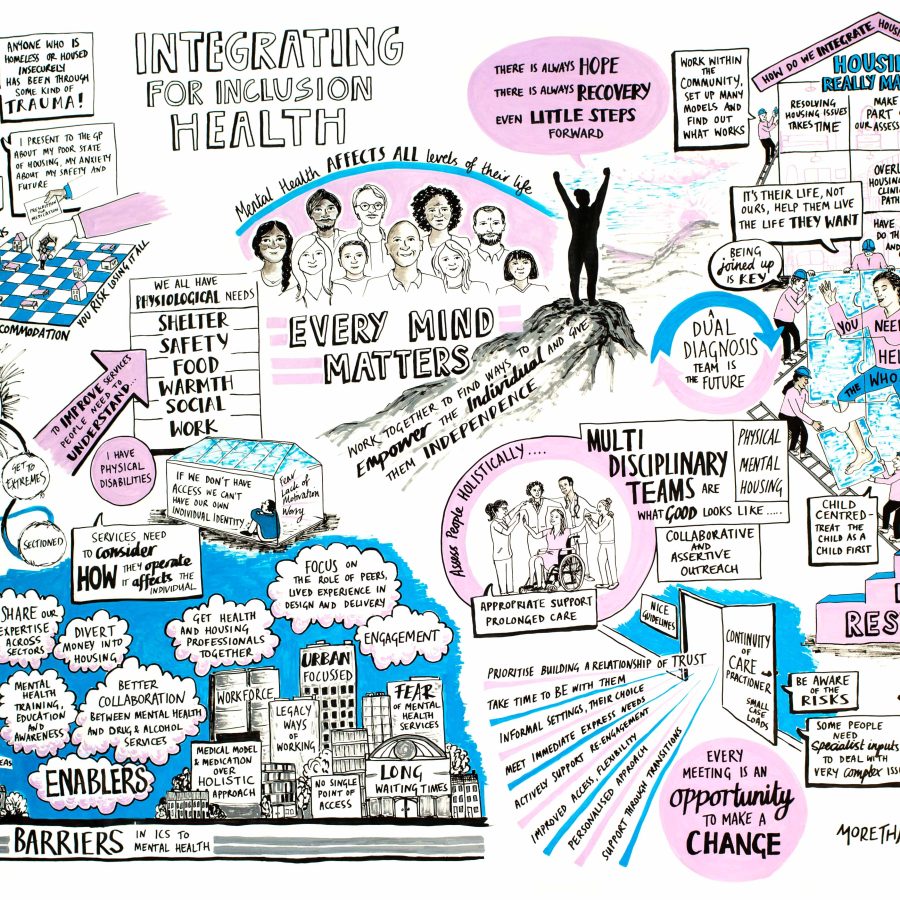 ANYONE WHO IS
HOMELESS OR HOUSED
INSECURELY
HAS BEEN THROUGH
SOME KIND OF
TRAUMA!
I PRESENT TO THE GP
ABOUT MY POOR STATE
OF HOUSING, MY ANXIETY
ABOUT MY SAFETY AND
FUTURE
YOU RISK LOSING IT ALL
INTEGRATING
FOR INCLUSION
HEALTH
Mental Health AFFECTS ALL levels of their life
EVERY MIND
MATTERS
THERE IS ALWAYS HOPE
THERE IS ALWAYS RECOVERY
EVEN LITTLE STEPS
FORWARD
WORK TOGETHER TO FIND WAYS TO
EMPOWER THE Individual AND GIVE
THEM INDEPENDENCE
WE ALL HAVE
PHYSIOLOGICAL NEEDS
SHELTER
SAFETY
FOOD
WARMTH
SOCIAL
WORK
TO IMPROVE SERVICES
PEOPLE NEED TO
UNDERSTAND...
I HAVE
PHYSICAL
DISABILITIES
GET TO
EXTREMES
SECTIONED
IF WE DON'T HAVE
ACCESS WE CAN'T
HAVE OUR OWN
INDIVIDUAL IDENTITY
Fear
Lack of
Motivation
Worry
SERVICES NEED
TO consider
HOW THEY operate
IT affects THE
INDIVIDUAL
WORK WITHIN
THE
COMMUNITY,
SET UP MANY
MODELS AND
FIND OUT
WHAT WORKS
HOW DO WE INTEGRATE
RESOLVING
HOUSING ISSUES
TAKES TIME
IT'S THEIR LIFE, NOT
OURS, HELP THEM LIVE
THE LIFE THEY WANT
BEING
joined up
IS KEY
YOU
THE WHO
A
DUAL
DIAGNOSIS
TEAM IS
THE FUTURE
Assess People HOLISTICALLY....
MULTI
DISCIPLINARY
TEAMS ARE
WHAT GOOD LOOKS LIKE.....
PHYSICAL
MENTAL
HOUSING
COLLABORATIVE
AND
ASSERTIVE
OUTREACH
APPROPRIATE SUPPORT
PROLONGED CARE
CHILD
CENTRED-
TREAT THE
CHILD AS A
CHILD FIRST
SHARE OUR
EXPERTISE
ACROSS
SECTORS
DIVERT
MONEY INTO
HOUSING
GET HEALTH
AND HOUSING
PROFESSIONALS
TOGETHER
FOCUS ON
THE ROLE OF PEERS,
LIVED EXPERIENCE IN
DESIGN AND DELIVERY
ENGAGEMENT
MENTAL
HEALTH
TRAINING,
EDUCATION
AND
AWARENESS
BETTER
COLLABORATION
BETWEEN MENTAL HEALTH
AND DRUG & ALCOHOL
SERVICES
ENABLERS
WORKFORCE
URBAN
FOCUSSED
LEGACY
WAYS OF
WORKING
FEAR
OF MENTAL
HEALTH
SERVICES
MEDICAL MODEL
& MEDICATION
OVER
HOLISTIC
APPROACH
NO SINGLE
POINT OF
ACCESS
LONG
WAITING TIMES
BARRIERS IN ICS TO
MENTAL HEALTH
NICE
GUIDELINES
CONTINUITY
OF CARE
PRACTITIONER
SMALL
CASE
LOADS
PRIORITISE BUILDING A RELATIONSHIP OF TRUST
TAKE TIME TO BE WITH THEM
INFORMAL SETTINGS, THEIR CHOICE
MEET IMMEDIATE EXPRESS NEEDS
ACTIVELY SUPPORT RE-ENGAGEMENT
IMPROVED ACCESS, FLEXIBILITY
PERSONALISED APPROACH
SUPPORT THROUGH TRANSITIONS
EVERY
MEETING IS AN
opportunity
TO MAKE A
CHANGE
BE AWARE
OF THE
RISKS
SOME PEOPLE
NEED
Specialist inputs
TO DEAL WITH
VERY complex